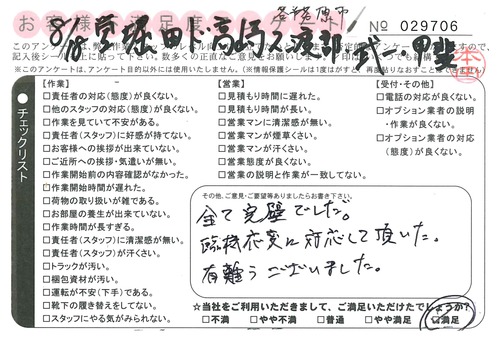 お客様満足度
各務原市
No 029706
8/18 堂堀田ド高橋久渡部武一甲斐
このアンケートは、弊
本
※このアンケートは、アンケート目的以外には使用いたしません。(※情報保護シールは1度がすと、再度貼りなおすことはできません)
チェックリスト
【作業】
□責任者の対応(態度)が良くない。
□他のスタッフの対応(態度)が良くない。
□作業を見ていて不安がある。
□責任者(スタッフ)に好感が持てない。
□お客様への挨拶が出来ていない。
□ご近所への挨拶・気遣いが無い。
□作業開始前の内容確認がなかった。
□作業開始時間が遅れた。
□荷物の取り扱いが雑である。
□お部屋の養生が出来ていない。
□作業時間が長すぎる。
□責任者(スタッフ)に清潔感が無い。
□責任者(スタッフ)が汗くさい。
□トラックが汚い。
□梱包資材が汚い。
□運転が不安(下手)である。
□靴下の履き替えをしてない。
□スタッフにやる気がみられない。
【営業】
□見積もり時間に遅れた。
□見積もり時間が長い。
□営業マンに清潔感が無い。
□営業マンが煙草くさい。
□営業マンが汗くさい。
□営業態度が良くない。
□営業の説明と作業が一致してない。
【受付・その他】
□電話の対応が良くない。
□オプション業者の説明
・作業が良くない。
□オプション業者の対応
(態度)が良くない。
その他、ご意見・ご要望等ありましたらお書き下さい。
全て完璧でした。
臨機応変に対応して頂いた。
有難うございました。
☆当社をご利用いただきまして、ご満足いただけたでしょうか?
□不満 □やや不満 □普通 □やや満足 ☑満足